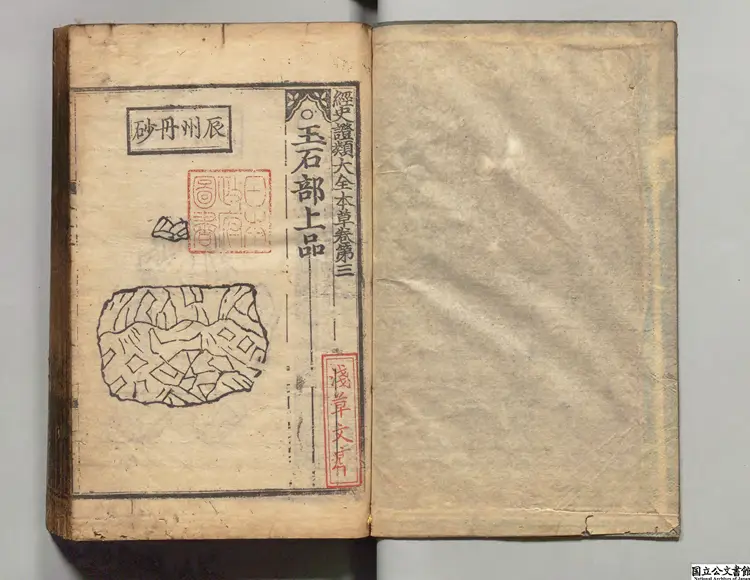 經史證類大全本草卷第三
○玉石部上品
辰州丹砂
日本
政府
圖書
淺草文庫
国立公文書館
National Archives of Japan